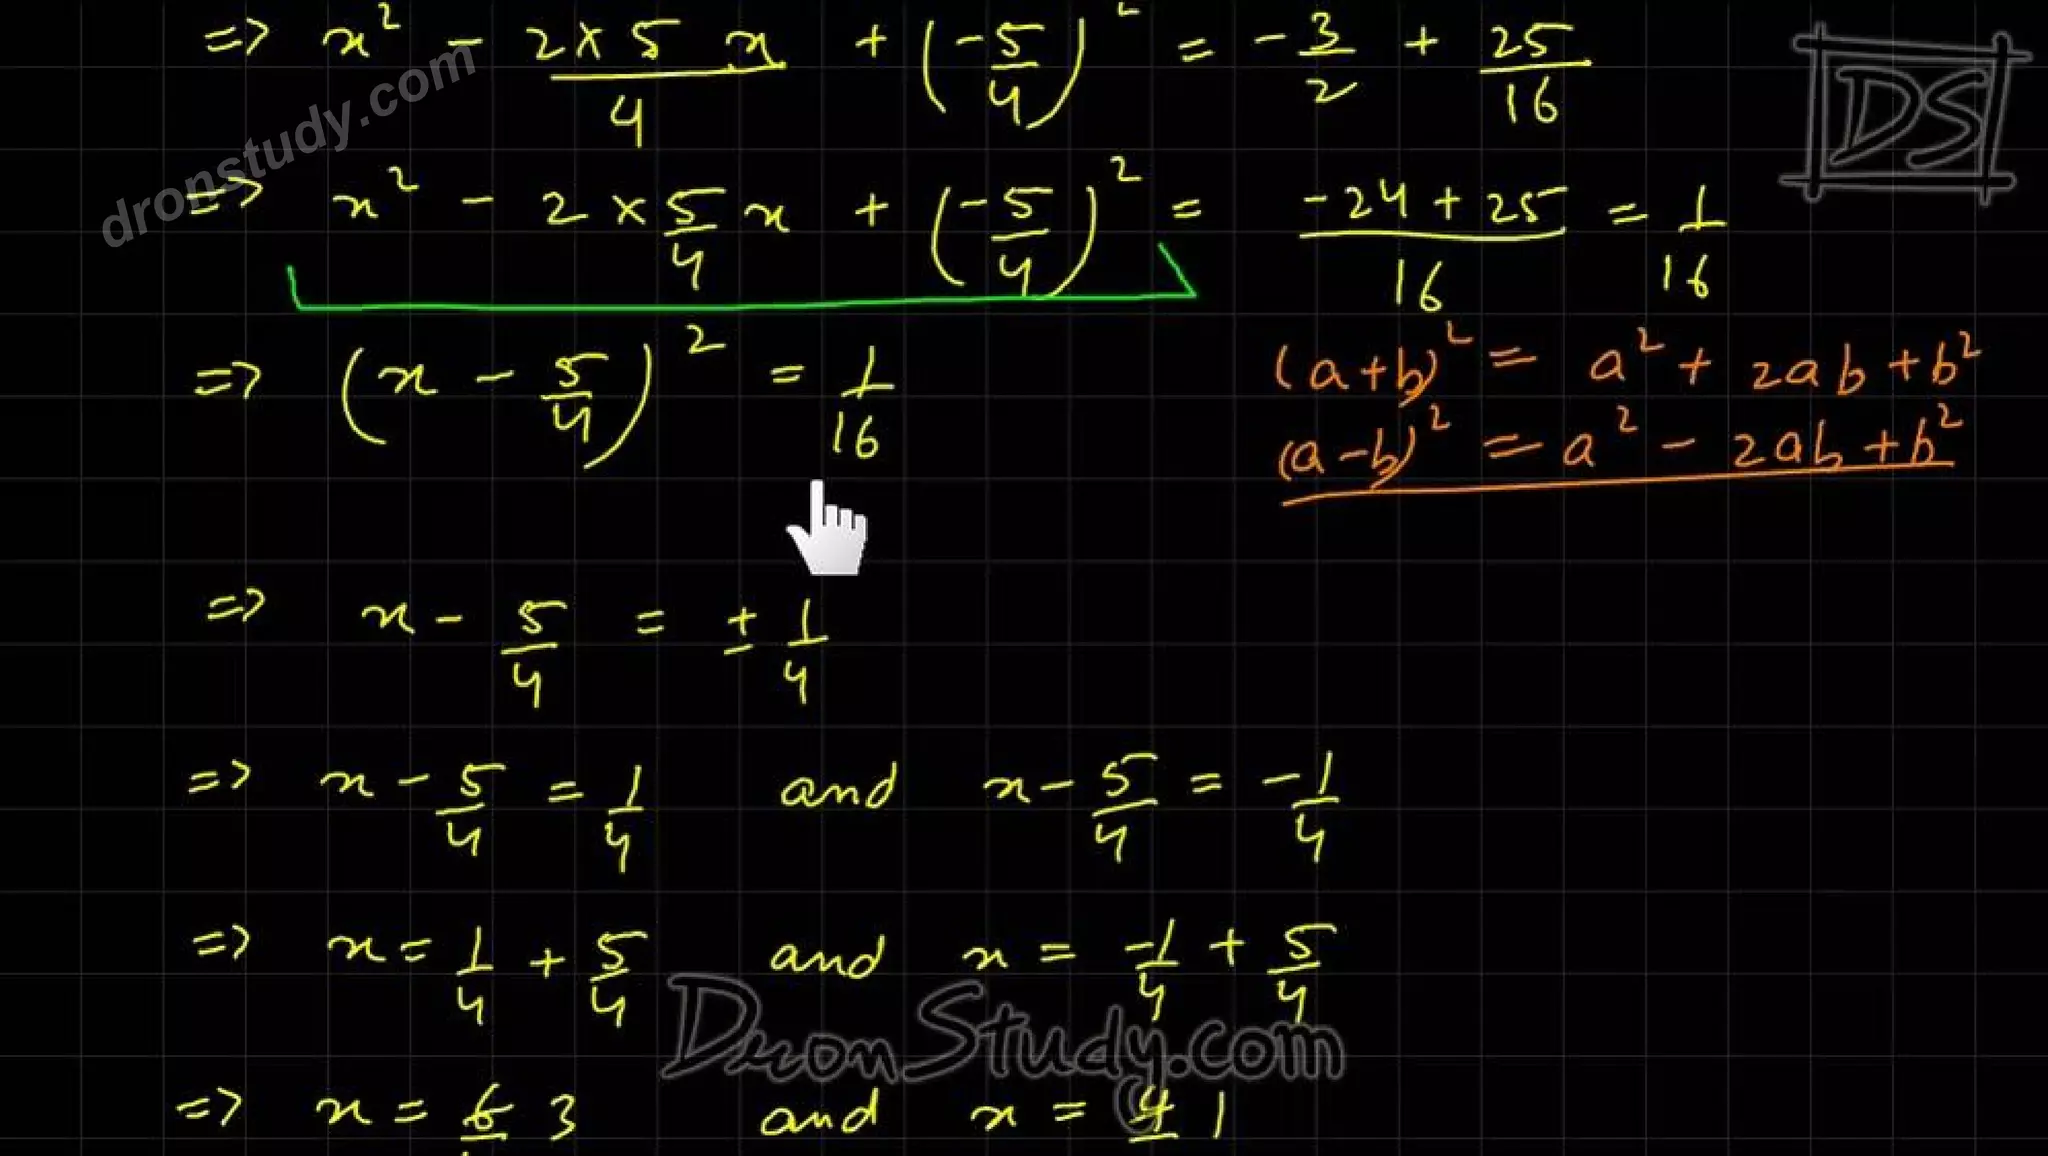 => x² - 2×5 x/4 + (-5/4)² = -3/2 + 25/16
DS
dronstudy.com
=> x² - 2 × 5/4 x + (-5/4)² = -24+25/16 = 1/16
=> (x - 5/4)² = 1/16
(a+b)² = a² + 2ab + b²
(a-b)² = a² - 2ab + b²
=> x - 5/4 = ± 1/4
=> x - 5/4 = 1/4 and x - 5/4 = -1/4
=> x = 1/4 + 5/4 and x = -1/4 + 5/4
DronStudy.com
=> x = 6 3 and x = 4 1